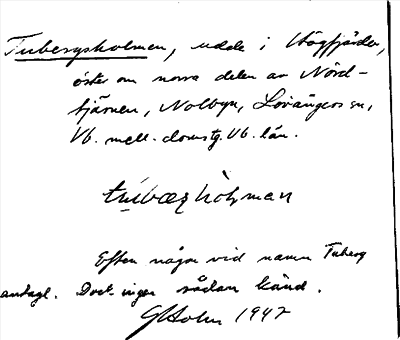 Tubergsholmen, udde i Högfjärden,
öster om norra delen av Nörd-
tjärnen, Nolbyn, Lövångers sn,
Vb. mell. domstg. Vb. län.
túbærhòlman
Efter någon vid namn Tuberg
antagl. Dock ingen sådan känd.
G Holm 1947